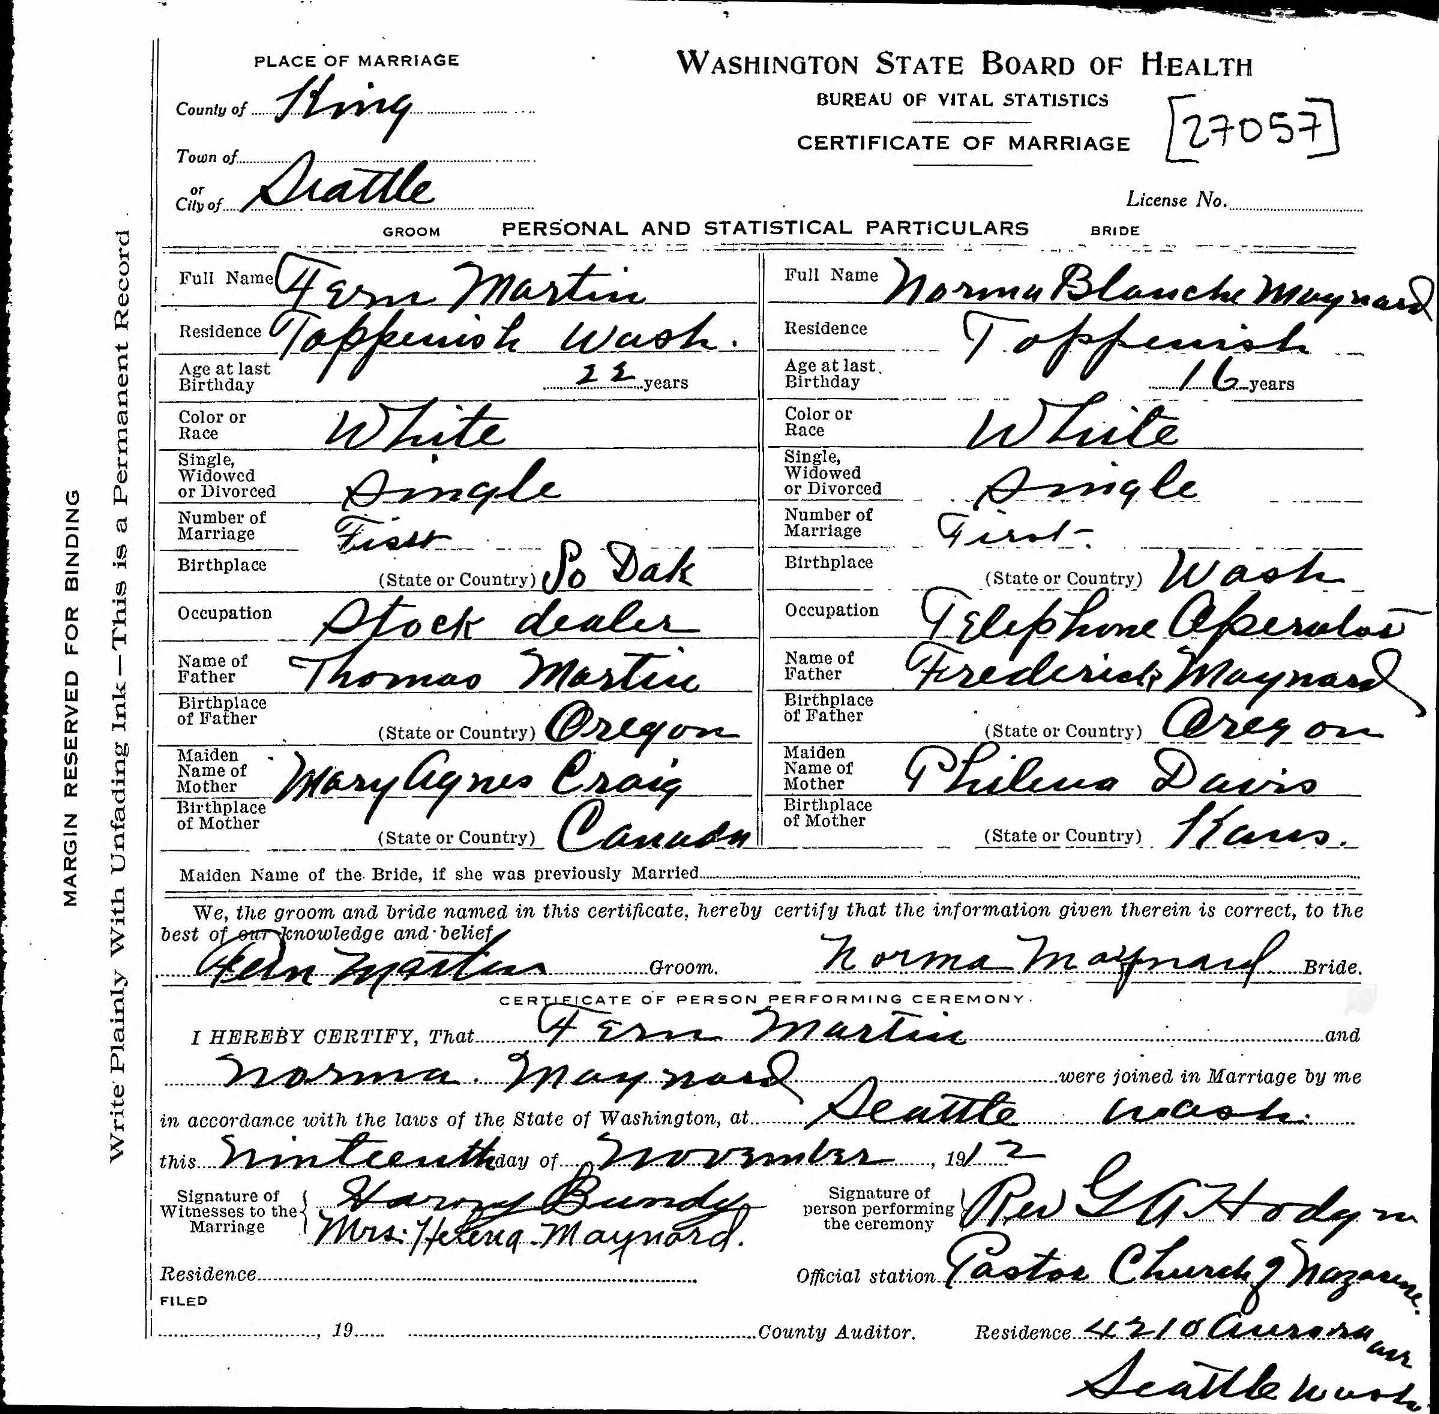 PLACE OF MARRIAGE
County of King
Town of
or
City of Seattle
WASHINGTON STATE BOARD OF HEALTH
BUREAU OF VITAL STATISTICS
CERTIFICATE OF MARRIAGE
[27057]
License No.
GROOM PERSONAL AND STATISTICAL PARTICULARS BRIDE
Full Name Fern Martin
Residence Toppenish Wash.
Age at last
Birthday 22 years
Color or
Race White
Single,
Widowed
or Divorced Single
Number of
Marriage First
Birthplace
(State or Country) So Dak
Occupation Stock dealer
Name of
Father Thomas Martin
Birthplace
of Father
(State or Country) Oregon
Maiden
Name of
Mother Mary Agnes Craig
Birthplace
of Mother
(State or Country) Canada
Full Name Norma Blanche Maynard
Residence Toppenish
Age at last
Birthday 16 years
Color or
Race White
Single,
Widowed
or Divorced Single
Number of
Marriage First.
Birthplace
(State or Country) Wash
Occupation Telephone Operator
Name of
Father Frederick Maynard
Birthplace
of Father
(State or Country) Oregon
Maiden
Name of
Mother Philena Davis
Birthplace
of Mother
(State or Country) Kans.
Maiden Name of the Bride, if she was previously Married
We, the groom and bride named in this certificate, hereby certify that the information given therein is correct, to the
best of our knowledge and belief
Fern Martin Groom. Norma Maynard Bride.
CERTIFICATE OF PERSON PERFORMING CEREMONY.
I HEREBY CERTIFY, That Fern Martin and
Norma Maynard were joined in Marriage by me
in accordance with the laws of the State of Washington, at Seattle Wash.
this Ninteenth day of November, 1912
Signature of
Witnesses to the
Marriage
Harry Bundy
Mrs. Helena Maynard.
Signature of
person performing
the ceremony
Rev G A Hodgin
Residence
Official station Pastor Church of Nazarene.
FILED
, 19 County Auditor.
Residence 4210 Aurora ave
Seattle Wash
MARGIN RESERVED FOR BINDING
Write Plainly With Unfading Ink—This is a Permanent Record